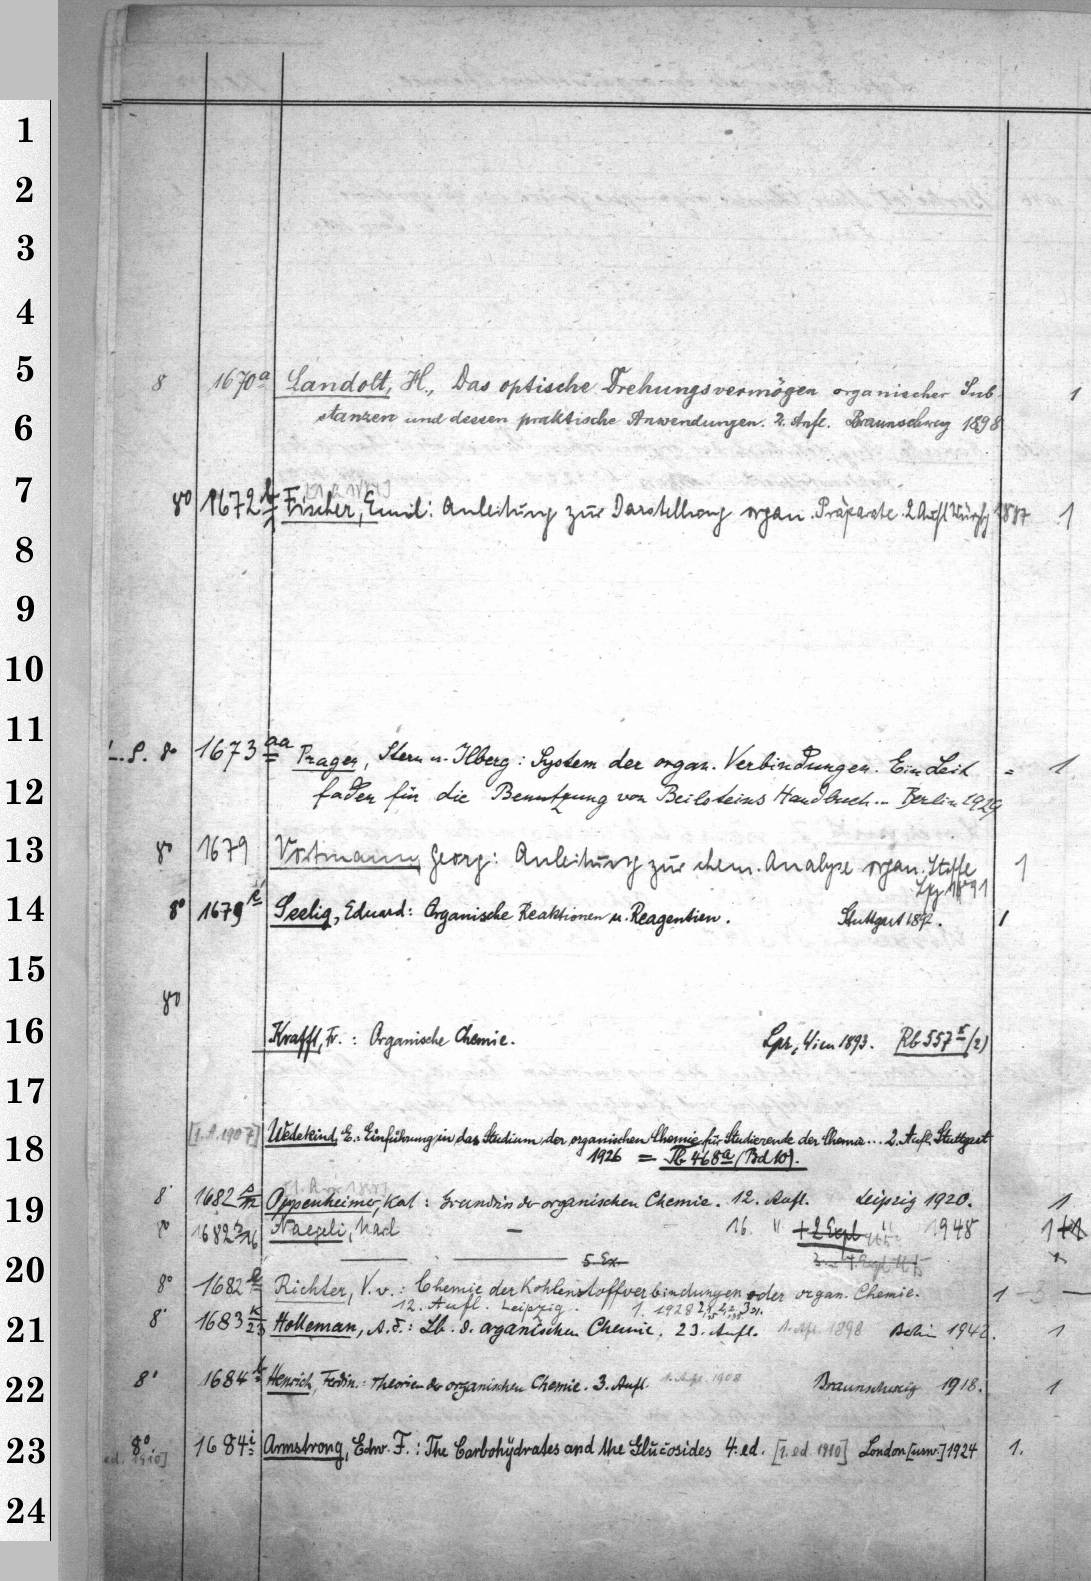 1
2
3
4
5
8 1670a Landolt, H., Das optische Drehungsvermögen organischer Sub- 1
6
stanzen und dessen praktische Anwendungen. 2. Aufl. Braunschweig 1898
7
8° 1672 Fischer, Emil: Anleitung zur Darstellung organ. Präparate. 2. Aufl. Würzbg 1887 1
8
9
10
11
8° 1673 aa Prager, Stern u. Ilberg: System der organ. Verbindungen. Ein Leit = 1
12
faden für die Benutzung von Beilsteins Handbuch... Berlin 1929
13
8° 1679 Vortmann, Georg: Anleitung zur chem. Analyse organ. Stoffe 1
Lpz. 1891
14
8° 1679 Seelig, Eduard: Organische Reaktionen u. Reagentien. Stuttgart 1
15
8°
16
Krafft, Fr.: Organische Chemie. Lpz., Wien 1893. Rb 557 (2)
17
[1. A. 1907] Wedekind, E.: Einführung in das Studium der organischen Chemie für Studierende der Chemie... 2. Aufl. Stuttgart
18
1926 = Tb 468a (Bd 10).
19
8° 1682 Oppenheimer, Karl: Grundriss der organischen Chemie. 12. Aufl. Leipzig 1920. 1
8° 1682 Naegeli, Karl — 16. " + 2 Expl " 1948 1
20
5 Ex.
8° 1682 Richter, V. v.: Chemie der Kohlenstoffverbindungen oder organ. Chemie. 1
12. Aufl. Leipzig. 1. 1928
21
8° 1683 k/23 Holleman, A. F.: Lb. d. organischen Chemie. 23. Aufl. 1. Afl. 1898 Berlin 1942. 1
22
8° 1684 Henrich, Ferdin.: Theorien der organischen Chemie. 3. Aufl. 1. Afl. 1908 Braunschweig 1918. 1
23
8° 1684 i Armstrong, Edw. F.: The Carbohydrates and the Glucosides 4. ed. [1. ed. 1910] London [usw.] 1924 1.
ed. 1910]
24